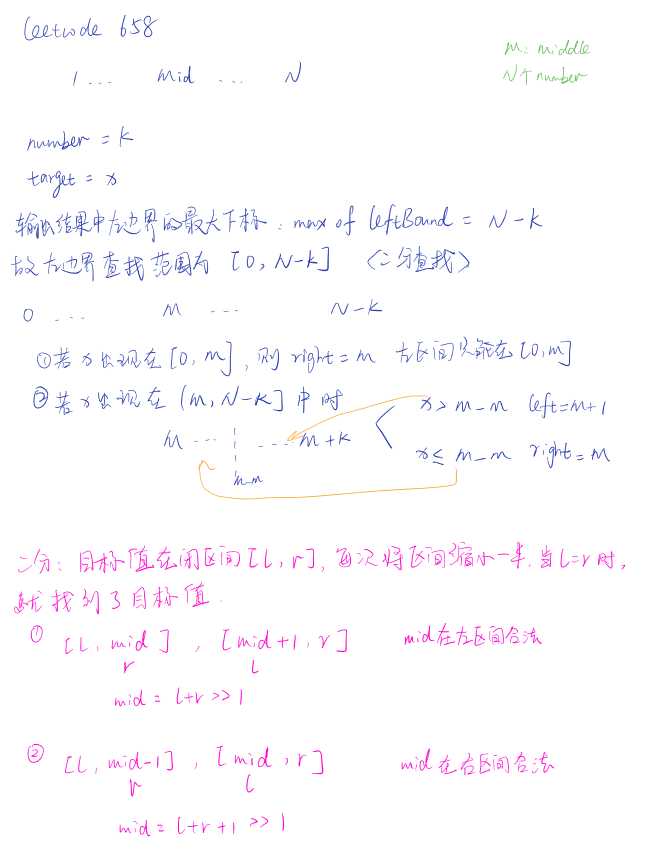 leetcode 658
M: middle
N个number
1 ... mid ... N
number = k
target = x
输出结果中左边界的最大下标: max of leftBound = N-k
故左边界查找范围为 [0, N-k] <二分查找>
0 ... M ... N-k
①若x出现在[0, M], 则 right = m 左区间只能在[0, m]
②若x出现在 (M, N-k] 中时
x > m_m left=m+1
M ... ... m+k
x ≤ m_m right = M
m_m
二分: 目标值在闭区间[l, r], 每次将区间缩小一半. 当l=r时,
就找到了目标值.
① [l, mid ] , [mid+1, r] mid在左区间合法
r l
mid = l+r >> 1
② [l, mid-1] , [mid , r] mid在右区间合法
r l
mid = l+r+1 >> 1